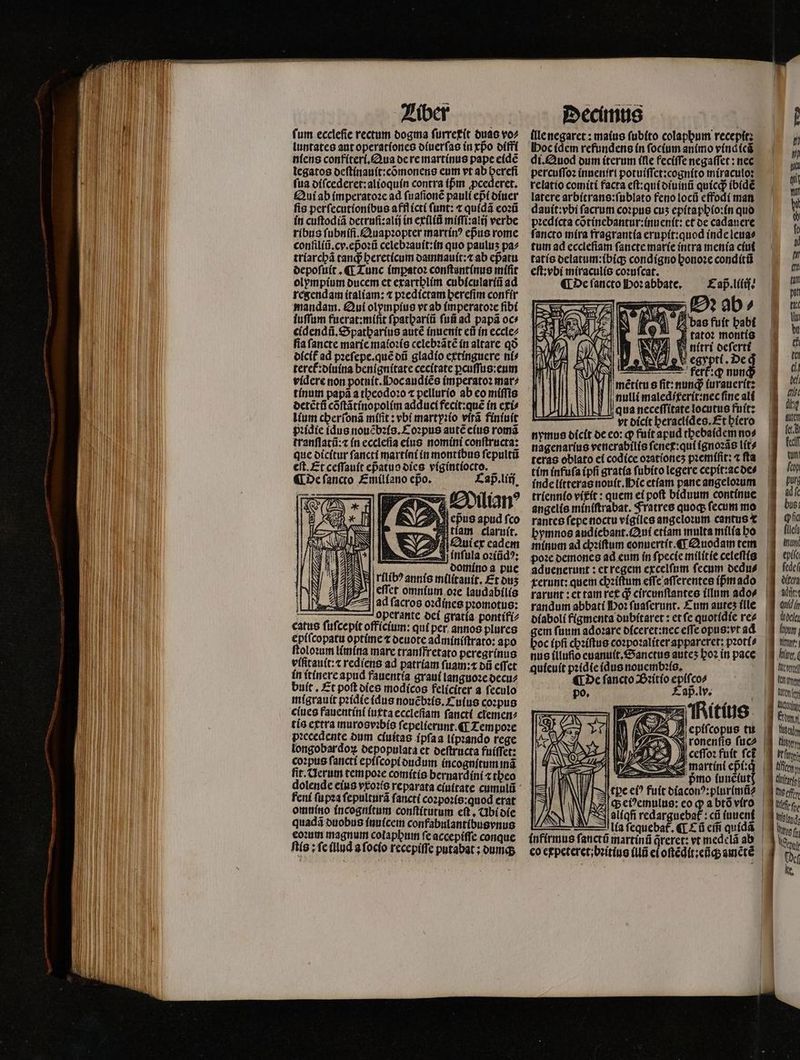 Liber
sum ecclesie rectum dogma surrexit duas vo⸗
luntates aut operationes diuersas in xp̄o diffi
niens confiteri. Qua de re martinus pape eidē
legatos destinauit: cōmonens eum vt ab heresi
sua discederet: alioquin contra ip̄m ꝓcederet.
Qui ab imperatore ad suasionē pauli ep̄i diuer
sis persecutionibus afflicti sunt: ⁊ quidā eoꝝ
in custodiā detrusi: alij in exiliū missi: alij verbe
ribus subnisi. Quapropter martinꝰ ep̄us rome
consiliū .cv. ep̄oꝝ celebrauit: in quo paulus pa⸗
triarchā tanꝙ hereticum damnauit: ⁊ ab ep̄atu
deposuit. ¶ Tunc imp̄ator constantinus misit
olympium ducem et exarthim cubiculariū ad
regendam italiam: ⁊ predictam heresim confir
mandam. Qui olympius vt ab imperatore sibi
iussum fuerat: misit spathariū suū ad papā oc⸗
cidendū. Spatharius autē inuenit eū in eccle⸗
sia sancte marie maioris celebrātē in altare qđ
dicit᷑ ad presepe. quē dū gladio extinguere ni⸗
teret᷑: diuina benignitate cecitate ꝑcussus: eum
videre non potuit. Hoc audiēs imperator mar⸗
tinum papā a theodoro ⁊ pellurio ab eo missis
detētū cōstātinopolim adduci fecit: quē in exi⸗
lium chersonā misit: vbi martyrio vitā finiuit
pridie idus nouēbris. Corpus autē eius romā
translatū: ⁊ in ecclesia eius nomini constructa:
que dicitur sancti martini in montibus sepultū
est. Et cessauit ep̄atus dies vigintiocto.
¶ De sancto Emiliano ep̄o. Cap̄.liij.
Milianꝰ
ep̄us apud sco
tiam claruit.
Qui ex eadem
insula oriūdꝰ:
domino a pue
rilibꝰ annis militauit. Et dum
esset omnium ore laudabilis
ad sacros ordines promotus:
operante dei gratia pontifi⸗
catus suscepit officium: qui per annos plures
episcopatu optime ⁊ deuote administrato: apo
stolorum limina mare transfretato peregrinus
visitauit: ⁊ rediens ad patriam suam: ⁊ dū esset
in itinere apud fauentia graui languore decu⸗
buit. Et post dies modicos feliciter a seculo
migrauit pridie idus nouēbris. Cuius corpus
ciues fauentini iuxta ecclesiam sancti clemen⸗
tis extra muros vrbis sepelierunt. ¶ Tempore
precedente dum ciuitas ipsa a liprando rege
longobardoꝝ depopulata et destructa fuisset:
corpus sancti episcopi dudum incognitum mā
sit. Uerum tempore comitis bernardini ⁊ theo
dolende eius vxoris reparata ciuitate cumulū
feni supra sepulturā sancti corporis: quod erat
omnino incognitum constitutum est. Ubi die
quadā duobus inuicem confabulantibus vnus
eorum magnum colaphum se accepisse conque
stis: se illud a socio recepisse putabat: dumꝗ
Decimus
ille negaret: maius subito colaphum recepit:
Hoc idem refundens in socium animo vindicā
di. Quod dum iterum iste fecisse negasset: nec
percussor inueniri potuisset: cognito miraculo:
relatio comiti facta est: qui diuinū quicꝙ ibidē
latere arbitrans: sublato feno locū effodi man
dauit: vbi sacrum corpus cum epitaphio: in quo
predicta cōtinebantur: inuenit: et de cadauere
sancto mira fragrantia erupit: quod inde leua⸗
tum ad ecclesiam sancte marie intra menia ciui
tatis delatum: ibiꝗ condigno honore conditū
est: vbi miraculis coruscat.
¶ De sancto Hor abbate. Cap̄.liiij.
Or ab⸗
bas fuit habi
tator montis
nitri deserti
egypti. De ꝗ̄
fert᷑: ꝙ nunꝙ̄
mētitus sit: nunꝙ̄ iurauerit:
nulli maledixerit: nec sine ali
qua necessitate locutus fuit:
vt dicit heraclides. Et hiero
nymus dicit de eo: ꝙ fuit apud thebaidem no⸗
nagenarius venerabilis senex: qui ignorās lit⸗
teras oblato ei codice orationes premisit: ⁊ sta
tim infusa ipsi gratia subito legere cepit: ac de⸗
inde litteras nouit. Hic etiam pane angelorum
triennio vixit: quem ei post biduum continue
angelis ministrabat. Fratres quoꝗ secum mo
rantes sepe noctu vigiles angelorum cantus ⁊
hymnos audiebant. Qui etiam multa milia ho
minum ad christum conuertit. ¶ Quodam tem
pore demones ad eum in specie militie celestis
aduenerunt: et regem excelsum secum dedu⸗
xerunt: quem christum esse asserentes ip̄m ado
rarunt: et tam rex ꝙ̄ circunstantes illum ado⸗
randum abbati Hor suaserunt. Cum autem ille
diaboli figmenta dubitaret: et se quotidie re⸗
gem suum adorare diceret: nec esse opus: vt ad
hoc ipsi christus corporaliter appareret: proti⸗
nus illusio euanuit. Sanctus autem hor in pace
quieuit pridie idus nouembris.
¶ De sancto Britio episco⸗
po. Cap̄.lv.
Ritius
episcopus tu
ronensis suc⸗
cessor fuit sct̄i
martini ep̄i: ꝗ
p̄mo iunētutꝭ
tp̄e eiꝰ fuit diaconꝰ: plurimū⸗
ꝗ eiꝰ emulus: eo ꝙ a btō viro
aliqn̄ redarguebat᷑: cū iuueni
lia sequebat᷑. ¶ Cū em̄ quidā
infirmus sanctū martinū q̄reret: vt medelā ab
eo expeteret: britius illū ei ostēdit: eūꝗ amētē